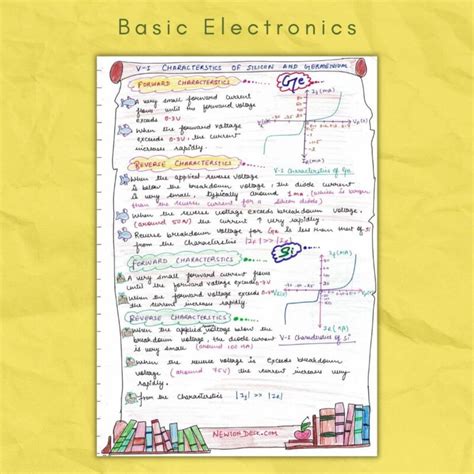 Basic Electronics
V-I CHARACTERSTICS OF SILICON AND GERMENIUM
FORWARD CHARACTERSTICS
Ge
A very small forward current
flows until the forward voltage
exceeds 0.3V
When the forward voltage
exceeds 0.3V, the current
increase rapidly.
V-I Characteristics of Ge
REVERSE CHARACTERSTICS
When the applied reverse voltage
is below the breakdown voltage, the diode current
is very small, typically around 1mA. (which is larger
than the reverse current for a silicon diode)
When the reverse voltage exceeds breakdown voltage,
(around 50V) the current ↑ very rapidly.
Reverse breakdown voltage for Ge is less than that of Si
from the characteristics
Si
FORWARD CHARACTERISTICS
A very small forward current flows
until the forward voltage exceeds
When the forward voltage exceeds
the current increase rapidly
REVERSE CHARACTERSTICS
When the applied voltage below the
breakdown voltage, the diode current
is very small (around 100 nA)
V-I Characteristics of Si
When the reverse voltage is exceeds breakdown
voltage (around 75V) the current increase very
rapidly.
from the Characteristics
NEWTONDESK.COM